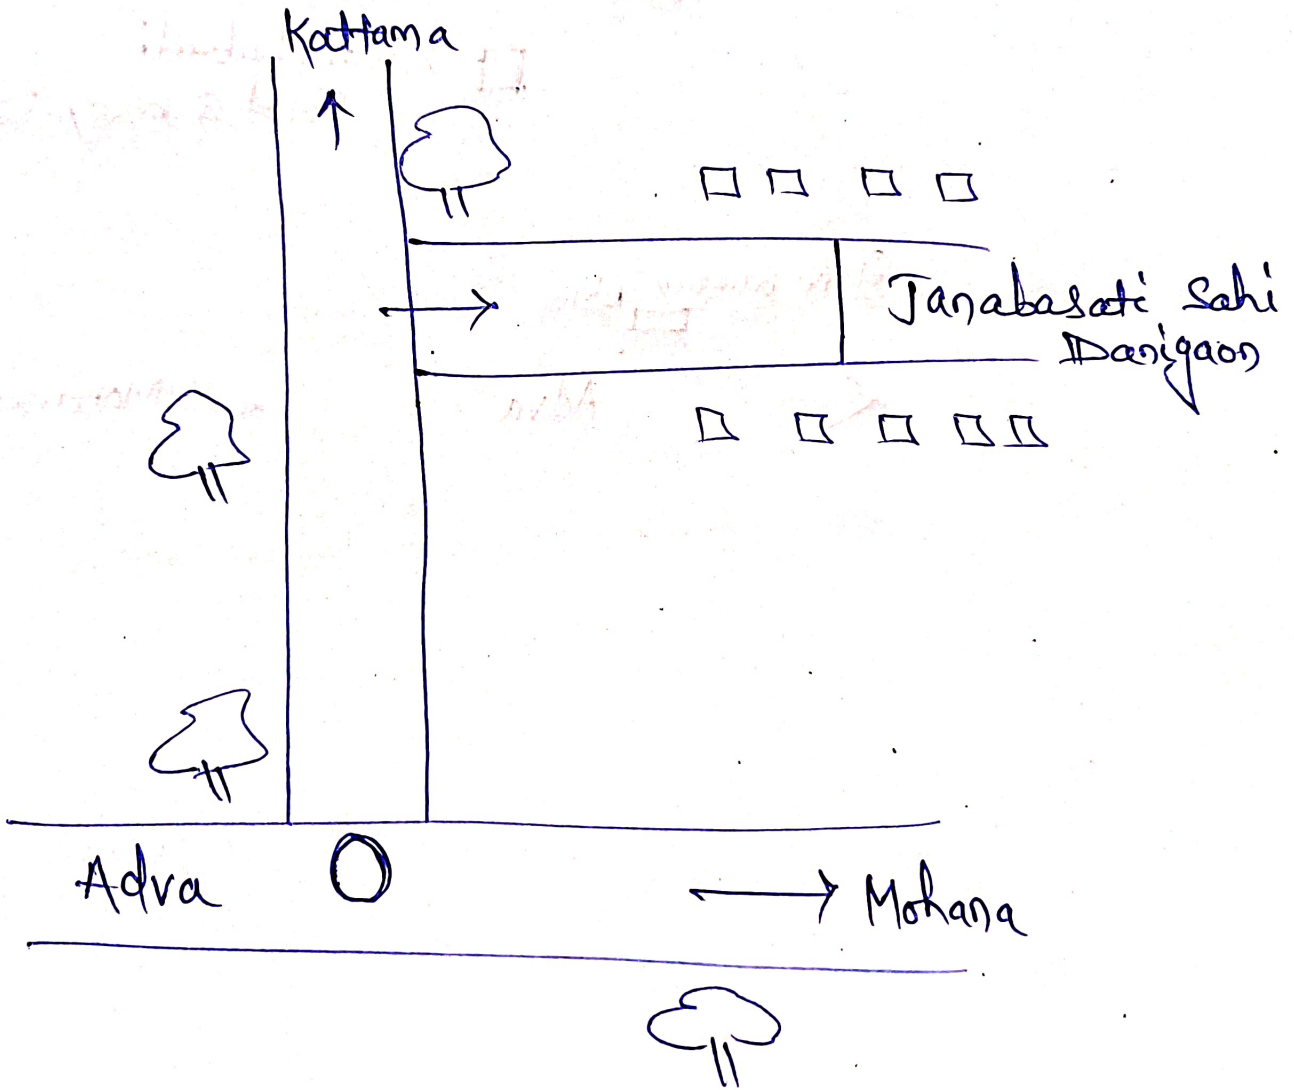 Kattama
Janabasati Sahi
Danigaon
Adva
Mohana